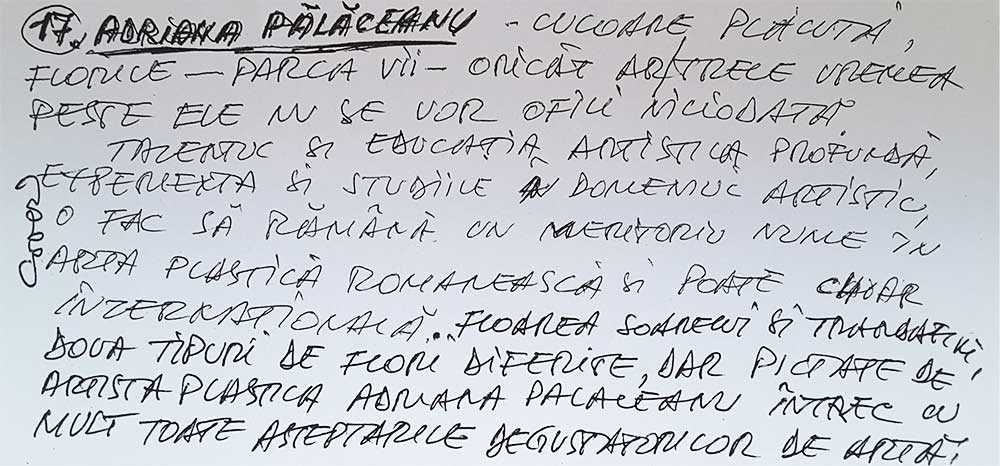 17. ADRIANA PĂLĂCEANU - CULOARE PLĂCUTĂ,
FLORILE — PARCĂ VII — ORICÂT AR TRECE VREMEA
PESTE ELE NU SE VOR OFILI NICIODATĂ
TALENTUL SI EDUCAȚIA ARTISTICA PROFUNDĂ,
EXPERIENTA SI STUDIILE ÎN DOMENIUL ARTISTIC,
O FAC SĂ RĂMÂNĂ UN MERITORIU NUME ÎN
ARTA PLASTICĂ ROMANEASCĂ SI POATE CHIAR
INTERNAȚIONALĂ. FLOAREA SOARELUI SI TRANDAFIRI,
DOUA TIPURI DE FLORI DIFERITE, DAR PICTATE DE
ARTISTA PLASTICA ADRIANA PALACEANU ÎNTREC CU
MULT TOATE ASTEPTARILE DEGUSTATORILOR DE ARTĂ.